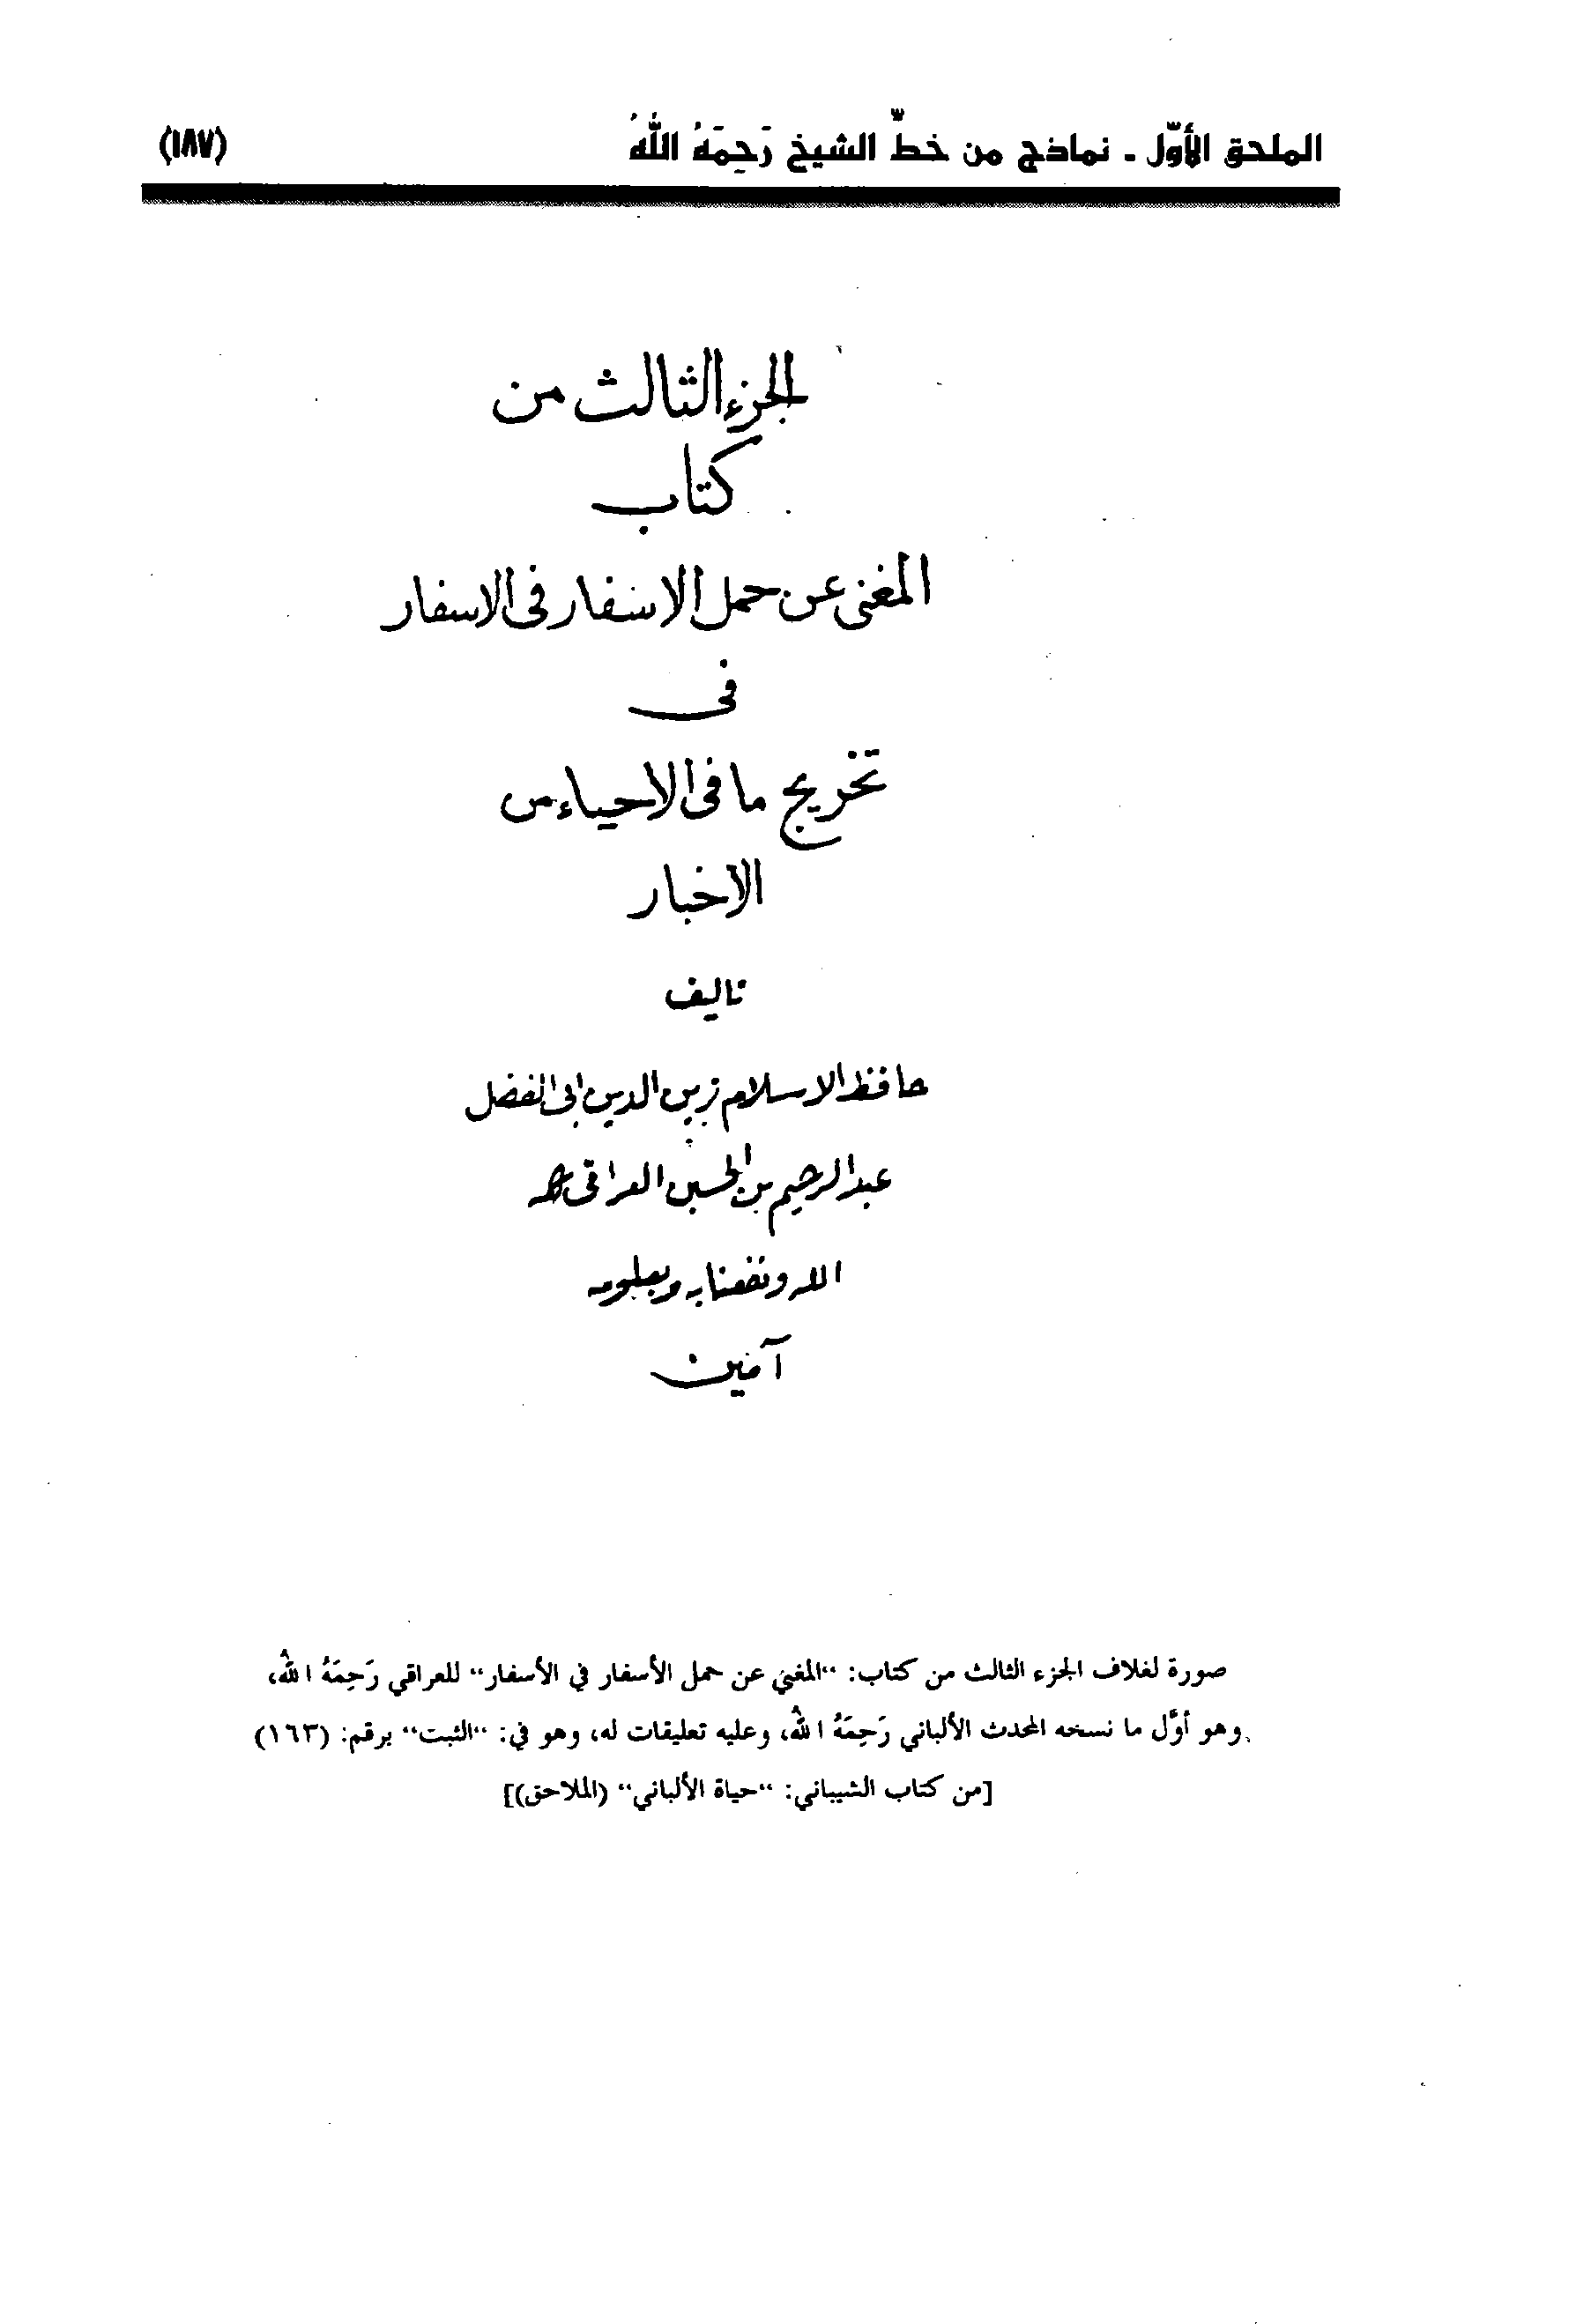 الملحق الأوّل - نماذج من خطّ الشيخ رَحِمَهُ اللهُ (١٨٧)
الجزء الثالث من
كتاب
المغنى عن حمل الاسفار فى الاسفار
فى
تخريج ما فى الاحياء من
الاخبار
تاليف
حافظ الاسلام زين الدين ابى الفضل
عبد الرحيم بن الحسين العراقى
الله ونفعنا به وبعلومه
آمين
صورة لغلاف الجزء الثالث من كتاب: "المغني عن حمل الأسفار في الأسفار" للعراقي رَحِمَهُ اللهُ،
وهو أوَّل ما نسخه المحدث الألباني رَحِمَهُ اللهُ، وعليه تعليقات له، وهو في: "الثبت" برقم: (١٦٣)
[من كتاب الشيباني: "حياة الألباني" (الملاحق)]